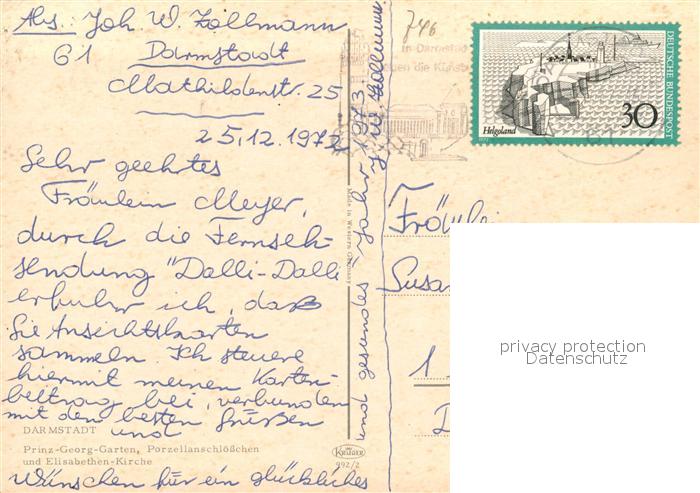 Abs: Joh. W. Zollmann
61 Darmstadt
Mathildenstr. 25
25.12.1972
Sehr geehrtes
Fräulein Meyer,
durch die Fernseh-
sendung "Dalli-Dalli"
erfuhr ich, daß
Sie Ansichtskarten
sammeln. Ich steuere
hiermit meinen Karten-
beitrag bei, verbunden
mit den besten Grüßen
und
Wünschen für ein glückliches
und gesundes Jahr 1973.
J W Zollmann
DARMSTADT
Prinz-Georg-Garten, Porzellanschlößchen
und Elisabethen-Kirche
KRÜGER
992/2
Made in Western Germany
746
in Darmstadt
die Künste
Helgoland
30
DEUTSCHE BUNDESPOST
Fräulei
Susa
1
D
privacy protection
Datenschutz